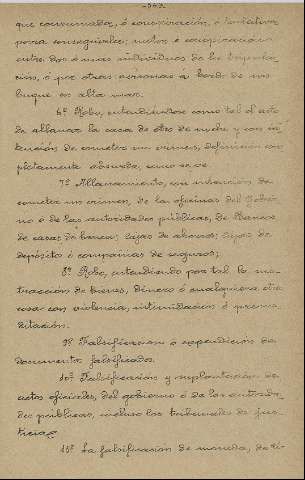 -343-
que consumada, ó conspiración, ó tentativa
para conseguirlo; motin ó conspiración
entre dos ó mas individuos de la tripula-
cion, ó por otras personas á bordo de un
buque en alta mar.
6º Robo, entendiendose como tal el acto
de allanar la casa de otro de noche y con in-
tención de cometer un crimen, definición com-
pletamente absurda, como se ve.
7º Allanamiento, con intención de
cometer un crimen, de las oficinas del Gobier-
no ó de las autoridades públicas, de Bancos
de casas de banca; cajas de ahorros; cajas de
depósito ó compañias de seguros;
8º Robo, entendiendo por tal la sus-
tracción de bienes, dinero ó cualquiera otra
cosa con violencia, intimidación ó preme-
ditación.
9º Falsificacion ó expendición de
documentos falsificados.
10º Falsificación y suplantación de
actos oficiales, del gobierno ó de las autorida-
des públicas, incluso los tribunales de jus-
ticia.
11º La falsificacion de moneda, de